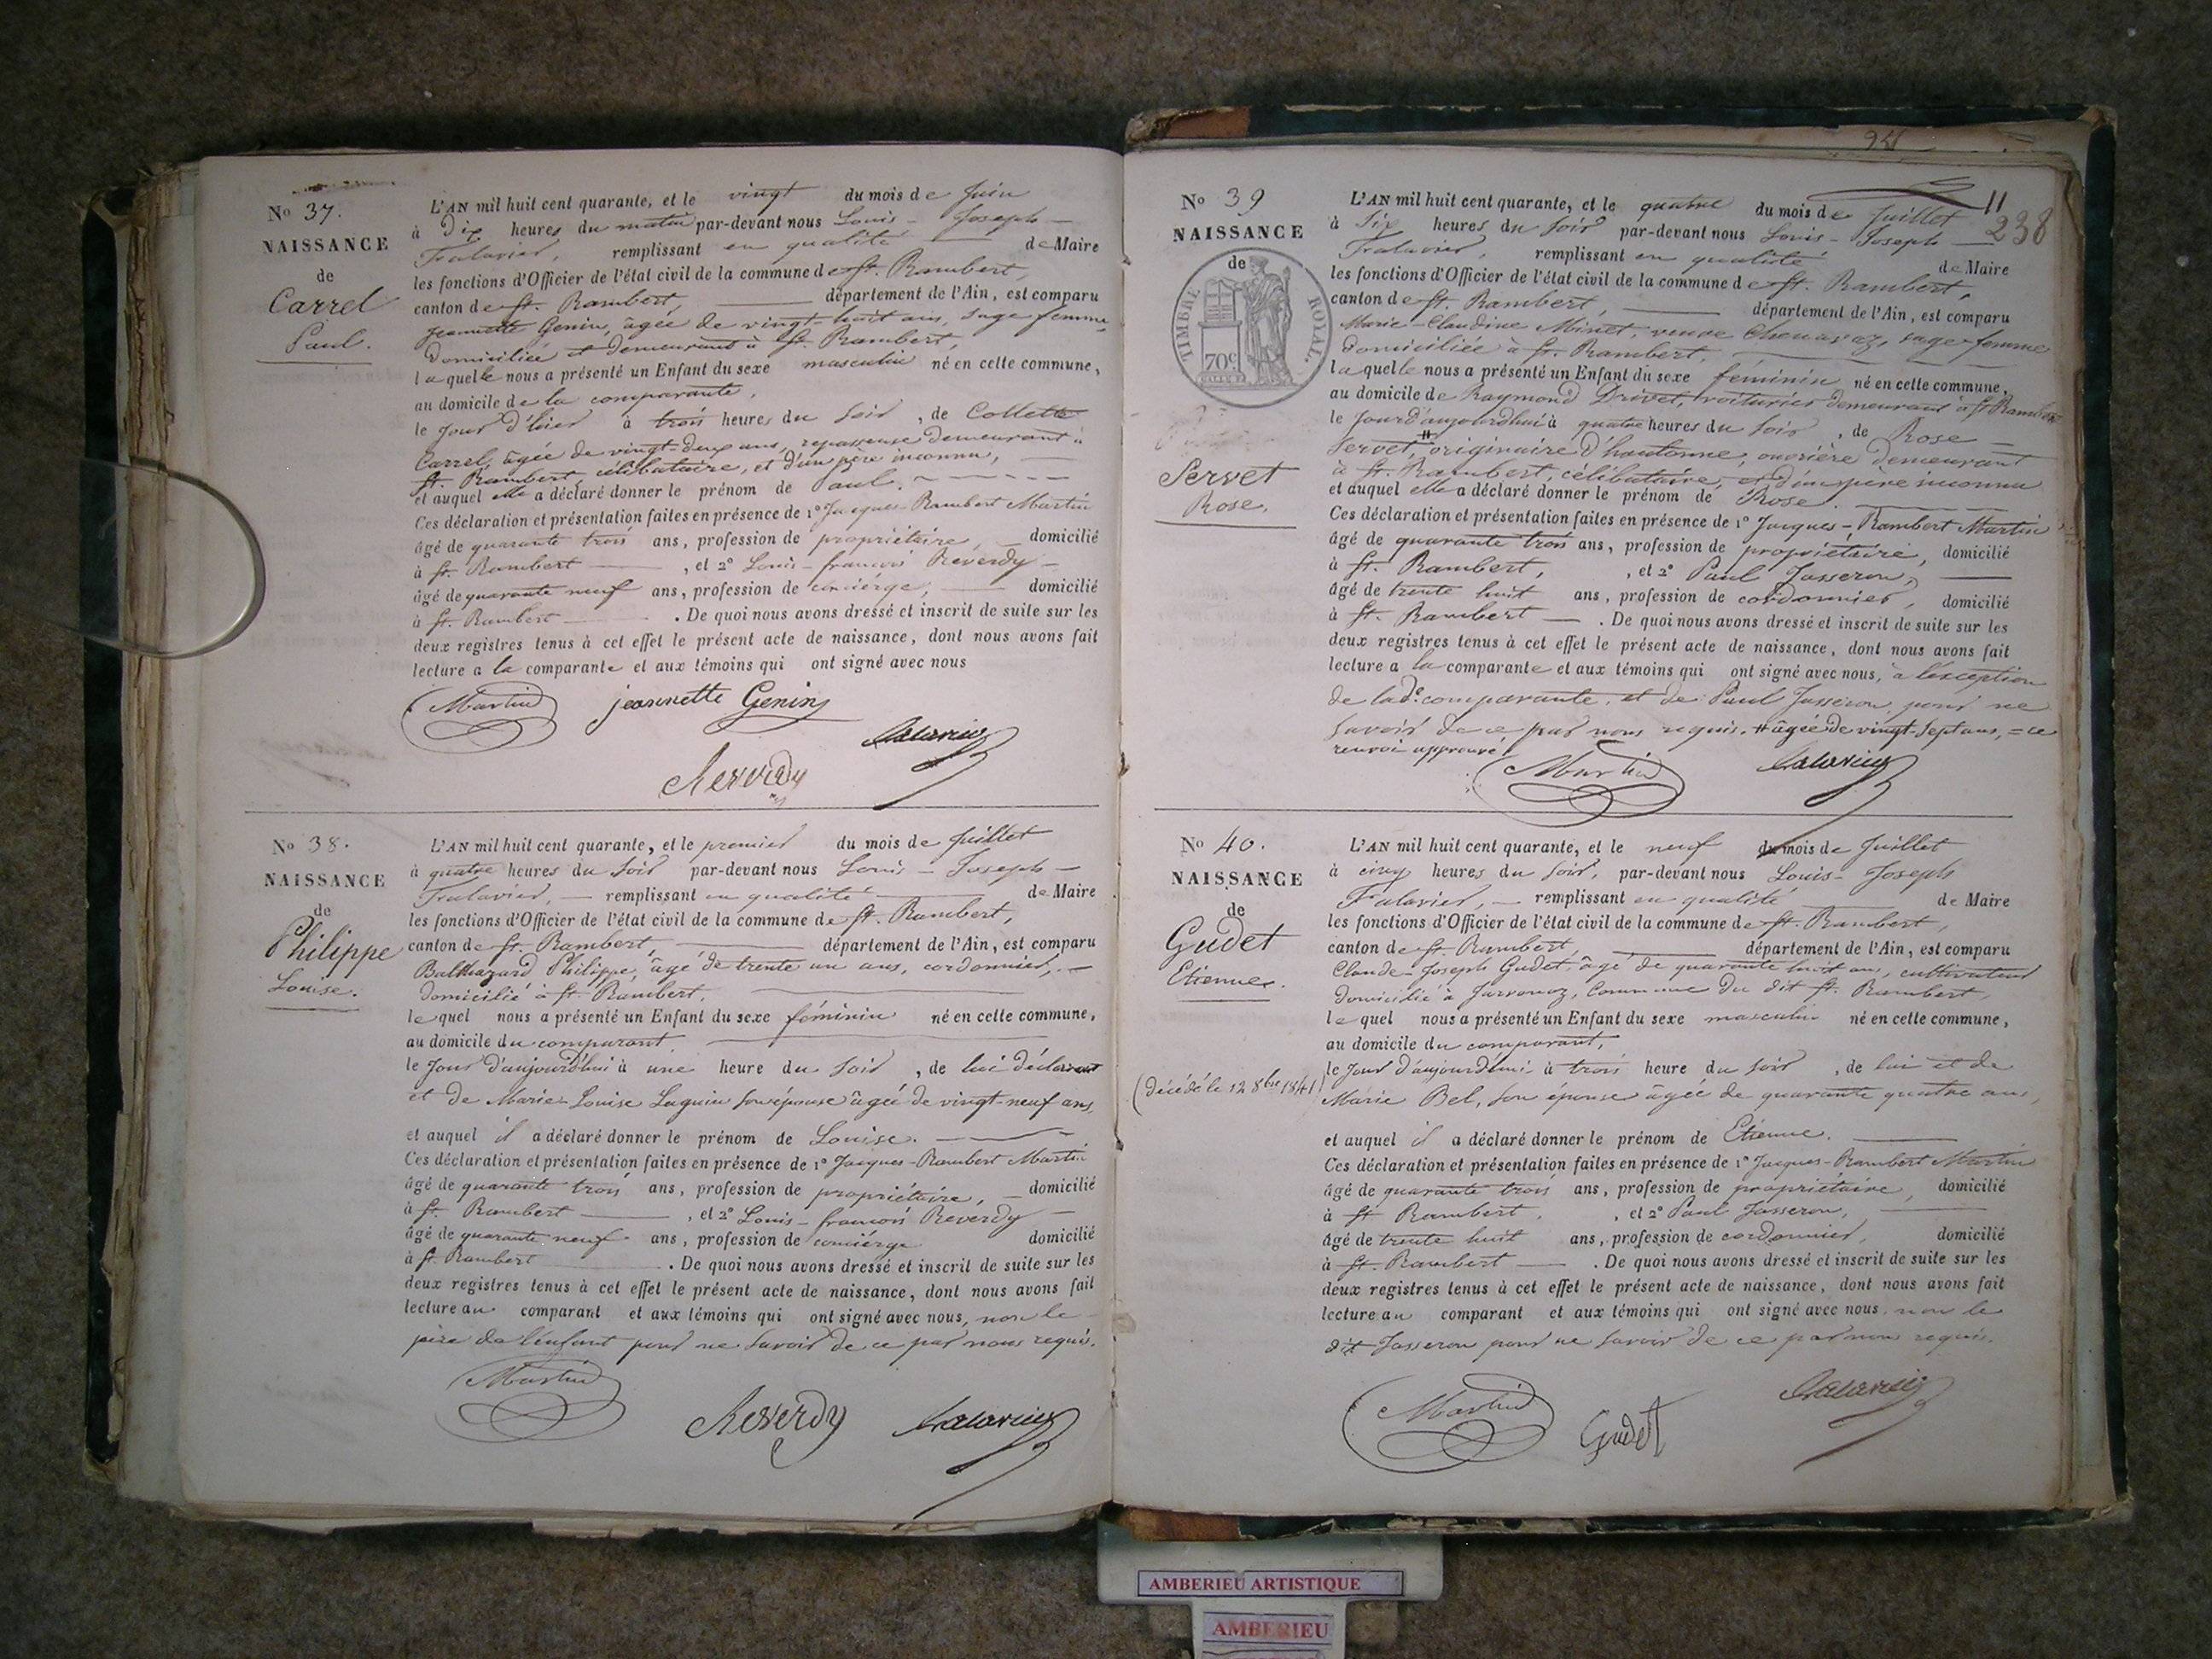 No 37.
NAISSANCE
de
Carrel
Paul.
L'AN mil huit cent quarante, et le vingt du mois de Juin
à Dix heures du matin par-devant nous Louis-Joseph
remplissant en qualité de Maire
les fonctions d'Officier de l'état civil de la commune de St. Rambert,
canton de St. Rambert, département de l'Ain, est comparu
Jeannette Genin, âgée de vingt-huit ans, sage femme,
domiciliée et demeurant à St. Rambert,
laquelle nous a présenté un Enfant du sexe masculin né en cette commune,
au domicile de la comparante,
le jour d'hier à trois heures du soir, de Collette
Carrel, âgée de vingt-deux ans, repasseuse demeurant à
St. Rambert, célibataire, et d'un père inconnu,
et auquel elle a déclaré donner le prénom de Paul.
Ces déclaration et présentation faites en présence de 1º Jacques-Rambert Martin
âgé de quarante trois ans, profession de propriétaire, domicilié
à St. Rambert, et 2º Louis-françois Reverdy
âgé de quarante neuf ans, profession de concièrge, domicilié
à St. Rambert. De quoi nous avons dressé et inscrit de suite sur les
deux registres tenus à cet effet le présent acte de naissance, dont nous avons fait
lecture a la comparante et aux témoins qui ont signé avec nous
Martin jeannette Genin
Reverdy
No 38.
NAISSANCE
de
Philippe
Louise.
L'AN mil huit cent quarante, et le premier du mois de Juillet
à quatre heures du soir par-devant nous Louis-Joseph
remplissant en qualité de Maire
les fonctions d'Officier de l'état civil de la commune de St. Rambert,
canton de St. Rambert, département de l'Ain, est comparu
Balthazard Philippe, âgé de trente un ans, cordonnier,
domicilié à St. Rambert,
lequel nous a présenté un Enfant du sexe féminin né en cette commune,
au domicile du comparant,
le jour d'aujourd'hui à une heure du soir, de lui déclarant
et de Marie-Louise son épouse âgée de vingt-neuf ans,
et auquel il a déclaré donner le prénom de Louise.
Ces déclaration et présentation faites en présence de 1º Jacques-Rambert Martin
âgé de quarante trois ans, profession de propriétaire, domicilié
à St. Rambert, et 2º Louis-françois Reverdy
âgé de quarante neuf ans, profession de concièrge domicilié
à St. Rambert. De quoi nous avons dressé et inscrit de suite sur les
deux registres tenus à cet effet le présent acte de naissance, dont nous avons fait
lecture au comparant et aux témoins qui ont signé avec nous, non le
père de l'enfant pour ne savoir de ce par nous requis.
Martin Reverdy
94
11
238
No 39
NAISSANCE
de
TIMBRE ROYAL.
70c
Servet
Rose.
L'AN mil huit cent quarante, et le quatre du mois de Juillet
à Six heures du soir par-devant nous Louis-Joseph
remplissant en qualité de Maire
les fonctions d'Officier de l'état civil de la commune de St. Rambert,
canton de St. Rambert, département de l'Ain, est comparu
Marie-Claudine Minet, veuve Chenavaz, sage-femme
domiciliée à St. Rambert,
laquelle nous a présenté un Enfant du sexe féminin né en cette commune,
au domicile de Raymond Drivet, voiturier demeurant à St Rambert
le jour d'aujourdhui à quatre heures du soir, de Rose
Servet, # originaire d'hautonne, ouvrière demeurant
à St. Rambert, célibataire, et d'un père inconnu
et auquel elle a déclaré donner le prénom de Rose.
Ces déclaration et présentation faites en présence de 1º Jacques-Rambert Martin
âgé de quarante trois ans, profession de propriétaire, domicilié
à St. Rambert, et 2º Paul Jasseron,
âgé de trente huit ans, profession de cordonnier, domicilié
à St. Rambert. De quoi nous avons dressé et inscrit de suite sur les
deux registres tenus à cet effet le présent acte de naissance, dont nous avons fait
lecture a la comparante et aux témoins qui ont signé avec nous, à l'exception
de lade. comparante, et de Paul Jasseron, pour ne
savoir de ce par nous requis. # âgée de vingt-sept ans, = ce
renvoi approuvé
Martin
No 40.
NAISSANCE
de
Gudet
Etienne.
(décédé le 12 8bre 1841)
L'AN mil huit cent quarante, et le neuf du mois de Juillet
à cinq heures du soir, par-devant nous Louis-Joseph
remplissant en qualité de Maire
les fonctions d'Officier de l'état civil de la commune de St. Rambert,
canton de St. Rambert, département de l'Ain, est comparu
Claude-Joseph Gudet, âgé de quarante huit ans, cultivateur
domicilié à Commune du dit St. Rambert,
lequel nous a présenté un Enfant du sexe masculin né en cette commune,
au domicile du comparant,
le jour d'aujourd'hui à trois heure du soir, de lui et de
Marie Bel, son épouse âgée de quarante quatre ans,
et auquel il a déclaré donner le prénom de Etienne.
Ces déclaration et présentation faites en présence de 1º Jacques-Rambert Martin
âgé de quarante trois ans, profession de propriétaire, domicilié
à St Rambert, et 2º Paul Jasseron,
âgé de trente huit ans, profession de cordonnier, domicilié
à St. Rambert. De quoi nous avons dressé et inscrit de suite sur les
deux registres tenus à cet effet le présent acte de naissance, dont nous avons fait
lecture au comparant et aux témoins qui ont signé avec nous, non le
dit Jasseron pour ne savoir de ce par nous requis.
Martin Gudet
AMBERIEU ARTISTIQUE
AMBERIEU